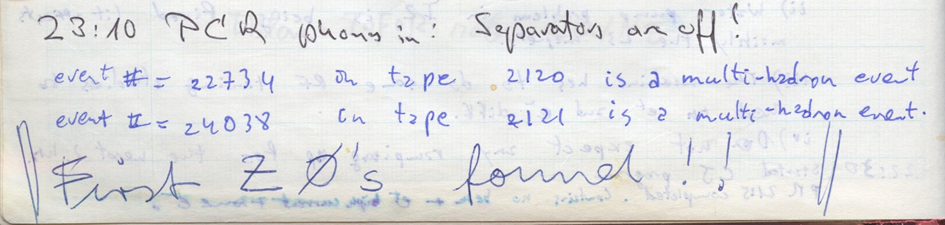 23:10 PCR phones in: Separators are off!
event # = 22734 on tape 2120 is a multi-hadron event
event # = 24038 on tape 2121 is a multi-hadron event.
First ZØ's found!!